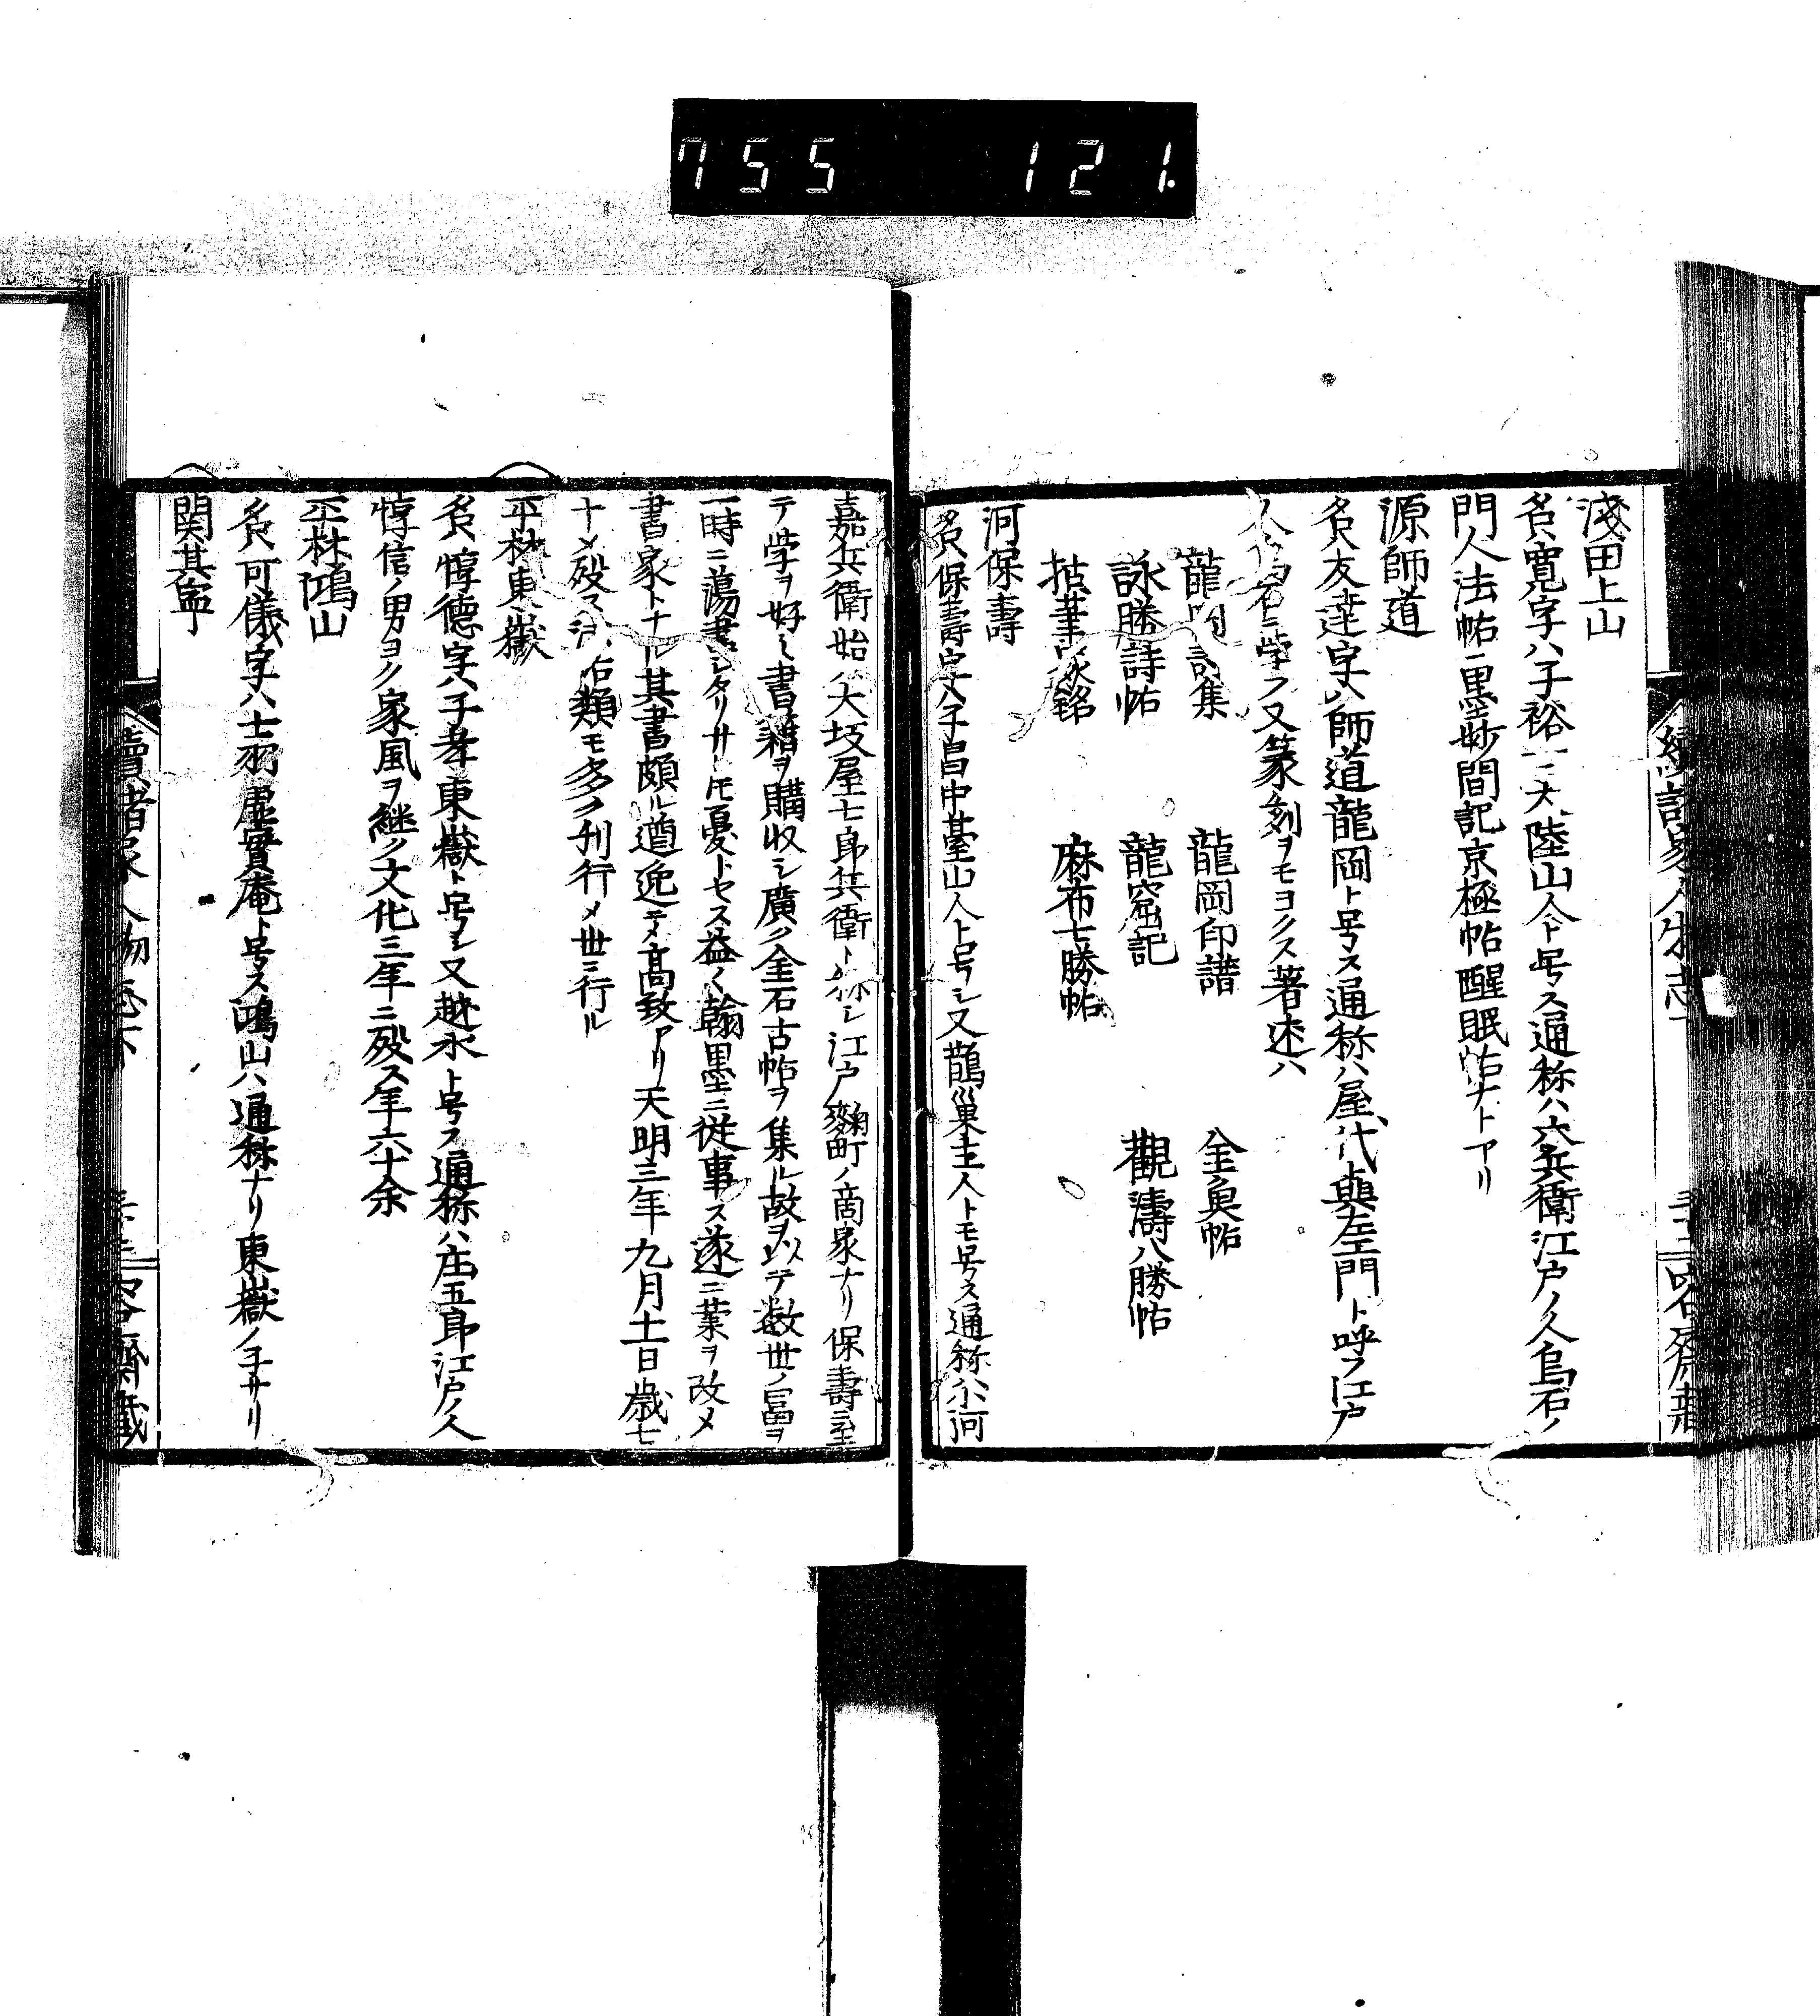 755 121.
淺田上山
名寛字ハ子裕一ニ大陸山人ト号ス通称ハ六兵衛江戸ノ人烏石ノ
門人法帖ニ墨妙間記京極帖醒眠帖ナトアリ
源師道
名友達字ハ師道龍岡ト号ス通称ハ屋代與左エ門ト呼フ江戸
人烏石ニ学フ又篆刻ヲモヨクス著述ハ
龍岡詩集 龍岡印譜 金魚帖
詠勝詩帖 龍窟記 觀濤八勝帖
拈筆冢銘 麻布七勝帖
河保壽
名保壽字ハ子昌中臺山人ト号シ又鵲巣主人トモ号ス通称ハ小河
嘉兵衛始ハ大坂屋七郎兵衛ト称シ江戸麹町ノ商家ナリ保壽ニ至
テ学ヲ好ミ書籍ヲ購収シ廣ク金石古帖ヲ集ル故ヲ以テ数世ノ冨ヲ
一時ニ蕩書シタリサレトモ憂トセス益〱翰墨ニ従事ス遂ニ業ヲ改メ
書家トナル其書頗ル遒逸テメ高致アリ天明三年九月十一日歳七
十メ殁ス法帖類モ多ク刊行メ世ニ行ル
平林東嶽
名惇德字ハ子孝東嶽ト号シ又越水ト号ス通称ハ庄五郎江戸ノ人
惇信ノ男ヨク家風ヲ継ク文化三年ニ殁ス年六十余
平林鴻山
名可儀字ハ士羽虚實庵ト号ス鴻山ハ通称ナリ東嶽ノ子ナリ
関其寧
續諸家人物志下